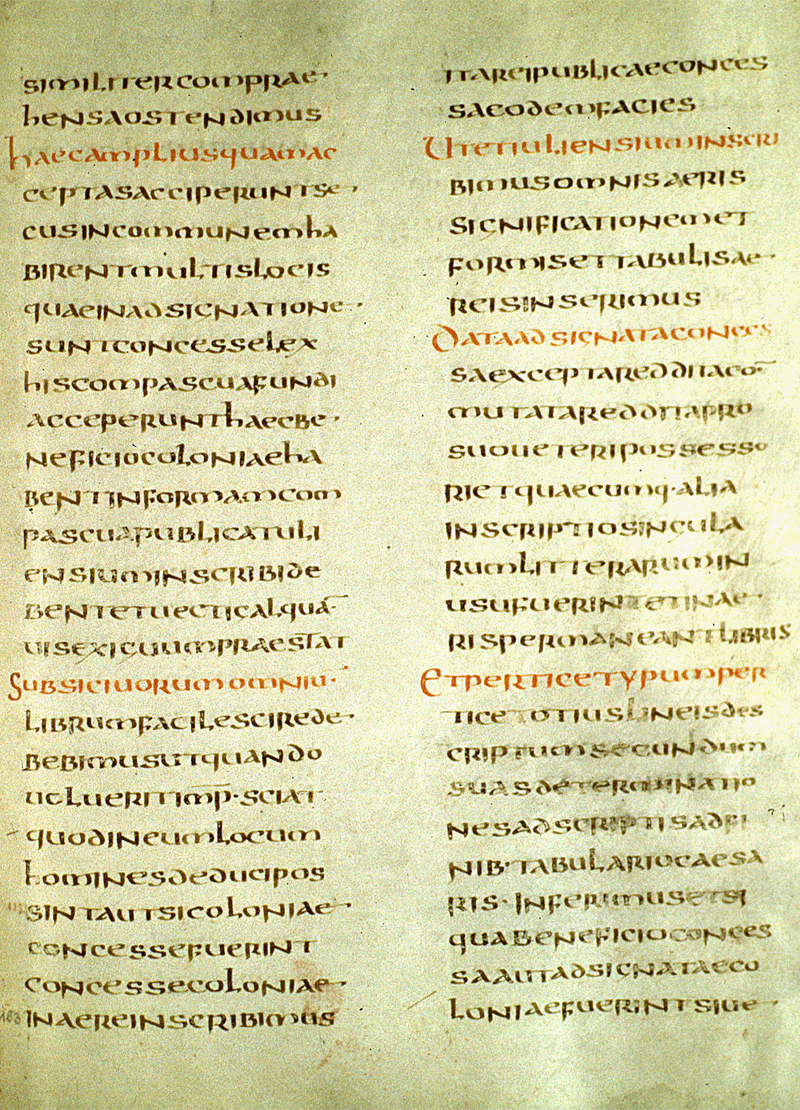 similitercomprae·
hensaostendimus
haecampliusquamac
ceptasacciperuntse·
cusincommunemha
birentmultislocis
quaeinadsignatione·
suntconcesselex
hiscompascuafundi
acceperunthaecbe·
neficiocoloniaeha
bentinformamcom
pascuapublicaiuli
ensiuminscribide
bentetuectigalqua̅
uisexiguumpraestat
Subsiciuorumomniu·
librumfacilescirede·
bebimusutquando
uolueritimp̅·sciat
quodineumlocum
hominesdeducipos
sintautsicoloniae·
concessefuerint
concessecoloniae·
inaereinscribimus
itareipublicaeconces
sacodemfacies
Utetiuliensiuminscri
bimusomnisaeris
significationemet
formisettabulisae·
reisinserimus
Dataadsignataconces
saexceptaredditaco̅
mutataredditapro
suoueteripossesso
rietquaecumq·alia
inscriptiosingula
rumlitterarumin
usufuerintetinae·
rispermaneantlibris
Etperticetypumper
ticetotiuslineisdes
criptumsecundum
suasdeterminatio
nesadscriptisadfi
nib·tabulariocaesa
ris·inferimusetsi
quabeneficioconces
saautadsignataeco
loniaefuerintsiue·